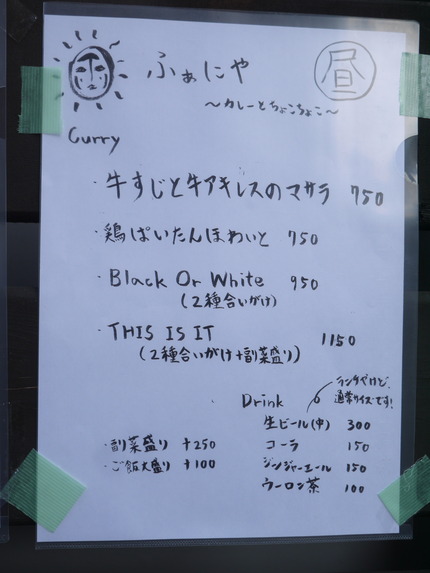 ふぁにや
昼
～カレーとちょこちょこ～
Curry
・牛すじと牛アキレスのマサラ 750
・鶏ぱいたんほわいと 750
・Black Or White 950
(2種合いがけ)
・THIS IS IT 1150
(2種合いがけ+副菜盛り)
・Drink
ランチだけど、
通常サイズです!
生ビール(中) 300
・副菜盛り +250
コーラ 150
・ご飯大盛り +100
ジンジャーエール 150
ウーロン茶 100